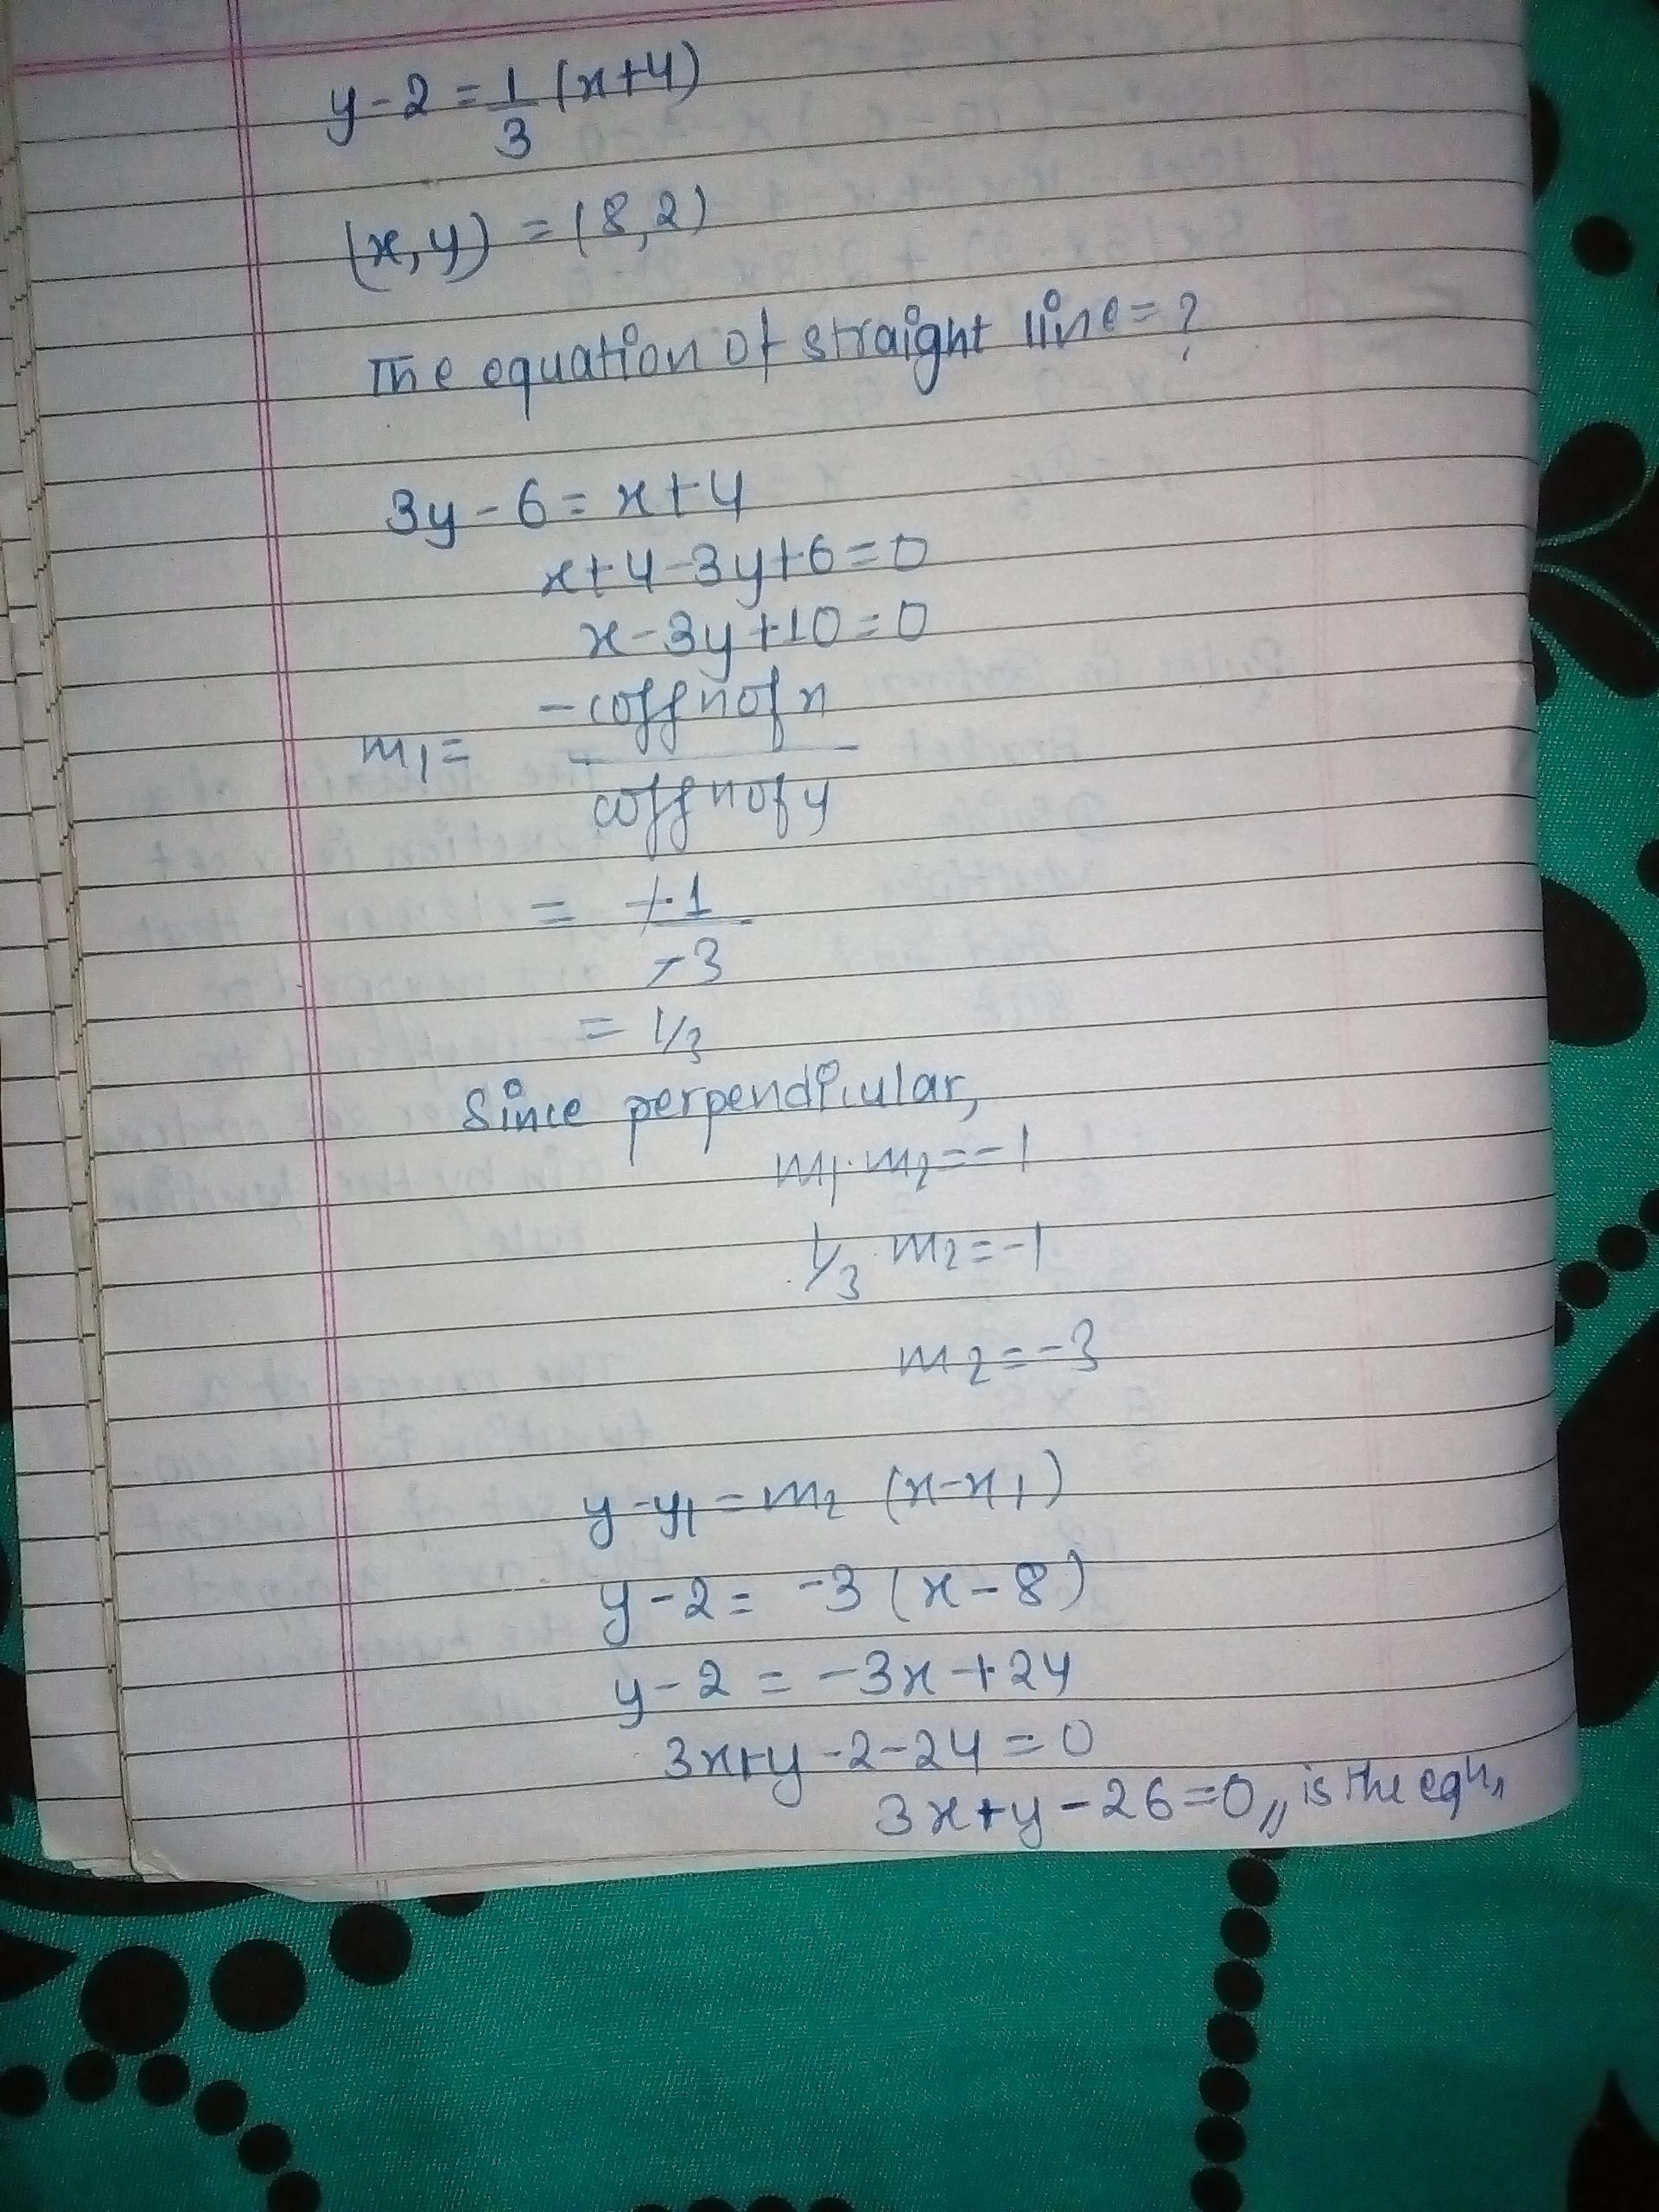 y-2=1/3(x+4)
(x,y)=(8,2)
The equation of straight line=?
3y-6=x+4
x+4-3y+6=0
x-3y+10=0
m1= -coffn of x / coffn of y
= -1/-3
= 1/3
Since perpendicular,
m1.m2=-1
1/3.m2=-1
m2=-3
y-y1=m2(x-x1)
y-2=-3(x-8)
y-2=-3x+24
3x+y-2-24=0
3x+y-26=0,, is the eqn,